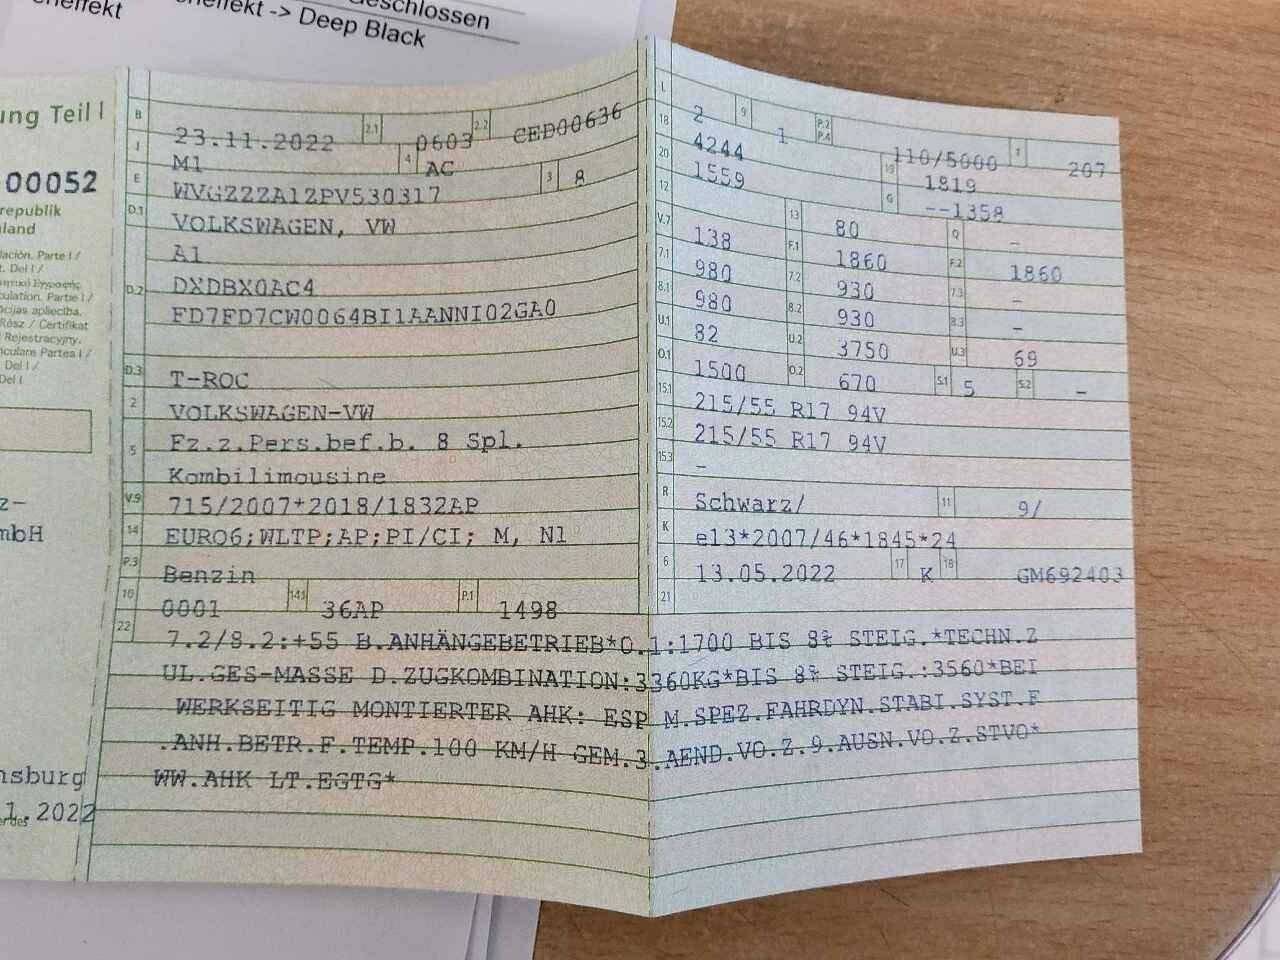 eschlossen
eneffekt
effekt -> Deep Black
ung Teil I
00052
republik
land
lación. Parte I /
t. Del I /
culation. Partie I /
ācijas apliecība.
Rész / Certifikat
Rejestracyjny.
iculare Partea I /
Del I /
Del I
z-
mbH
nsburg
1.2022
B 23.11.2022 2.1 0603 2.2 CED00636
J M1 4 AC
E WVGZZZA1ZPV530317 3 8
D.1 VOLKSWAGEN, VW
A1
D.2 DXDBX0AC4
FD7FD7CW0064BI1AANNI02GA0
D.3 T-ROC
2 VOLKSWAGEN-VW
5 Fz.z.Pers.bef.b. 8 Spl.
Kombilimousine
V.9 715/2007*2018/1832AP
14 EURO6;WLTP;AP;PI/CI; M, N1
P.3 Benzin
10 0001 14.1 36AP P.1 1498
L 2 9 1 P.2 P.4 110/5000 T 207
18 4244 19 1819
20 1559 G --1358
12 13 80 Q -
V.7 138 F.1 1860 F.2 1860
7.1 980 7.2 930 7.3 -
8.1 980 8.2 930 8.3 -
U.1 82 U.2 3750 U.3 69
O.1 1500 O.2 670 S.1 5 S.2 -
15.1 215/55 R17 94V
15.2 215/55 R17 94V
15.3 -
R Schwarz/ 11 9/
K e13*2007/46*1845*24
6 13.05.2022 17 K 16 GM692403
21
22 7.2/8.2:+55 B.ANHÄNGEBETRIEB*O.1:1700 BIS 8% STEIG.*TECHN.Z
UL.GES-MASSE D.ZUGKOMBINATION:3360KG*BIS 8% STEIG.:3560*BEI
WERKSEITIG MONTIERTER AHK: ESP M.SPEZ.FAHRDYN.STABI.SYST.F
.ANH.BETR.F.TEMP.100 KM/H GEM.3.AEND.VO.Z.9.AUSN.VO.Z.STVO*
WW.AHK LT.EGTG*